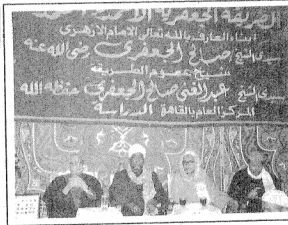 الطريقة الجعفرية الأحمدية
أبناء العارف بالله تعالى الإمام الأزهري
سيدى الشيخ صالح الجعفرى رضى الله عنه
شيخ عموم الطريقة
سيدى الشيخ عبد الغنى صالح الجعفرى حفظه الله
المركز العام بالقاهرة الدراسة